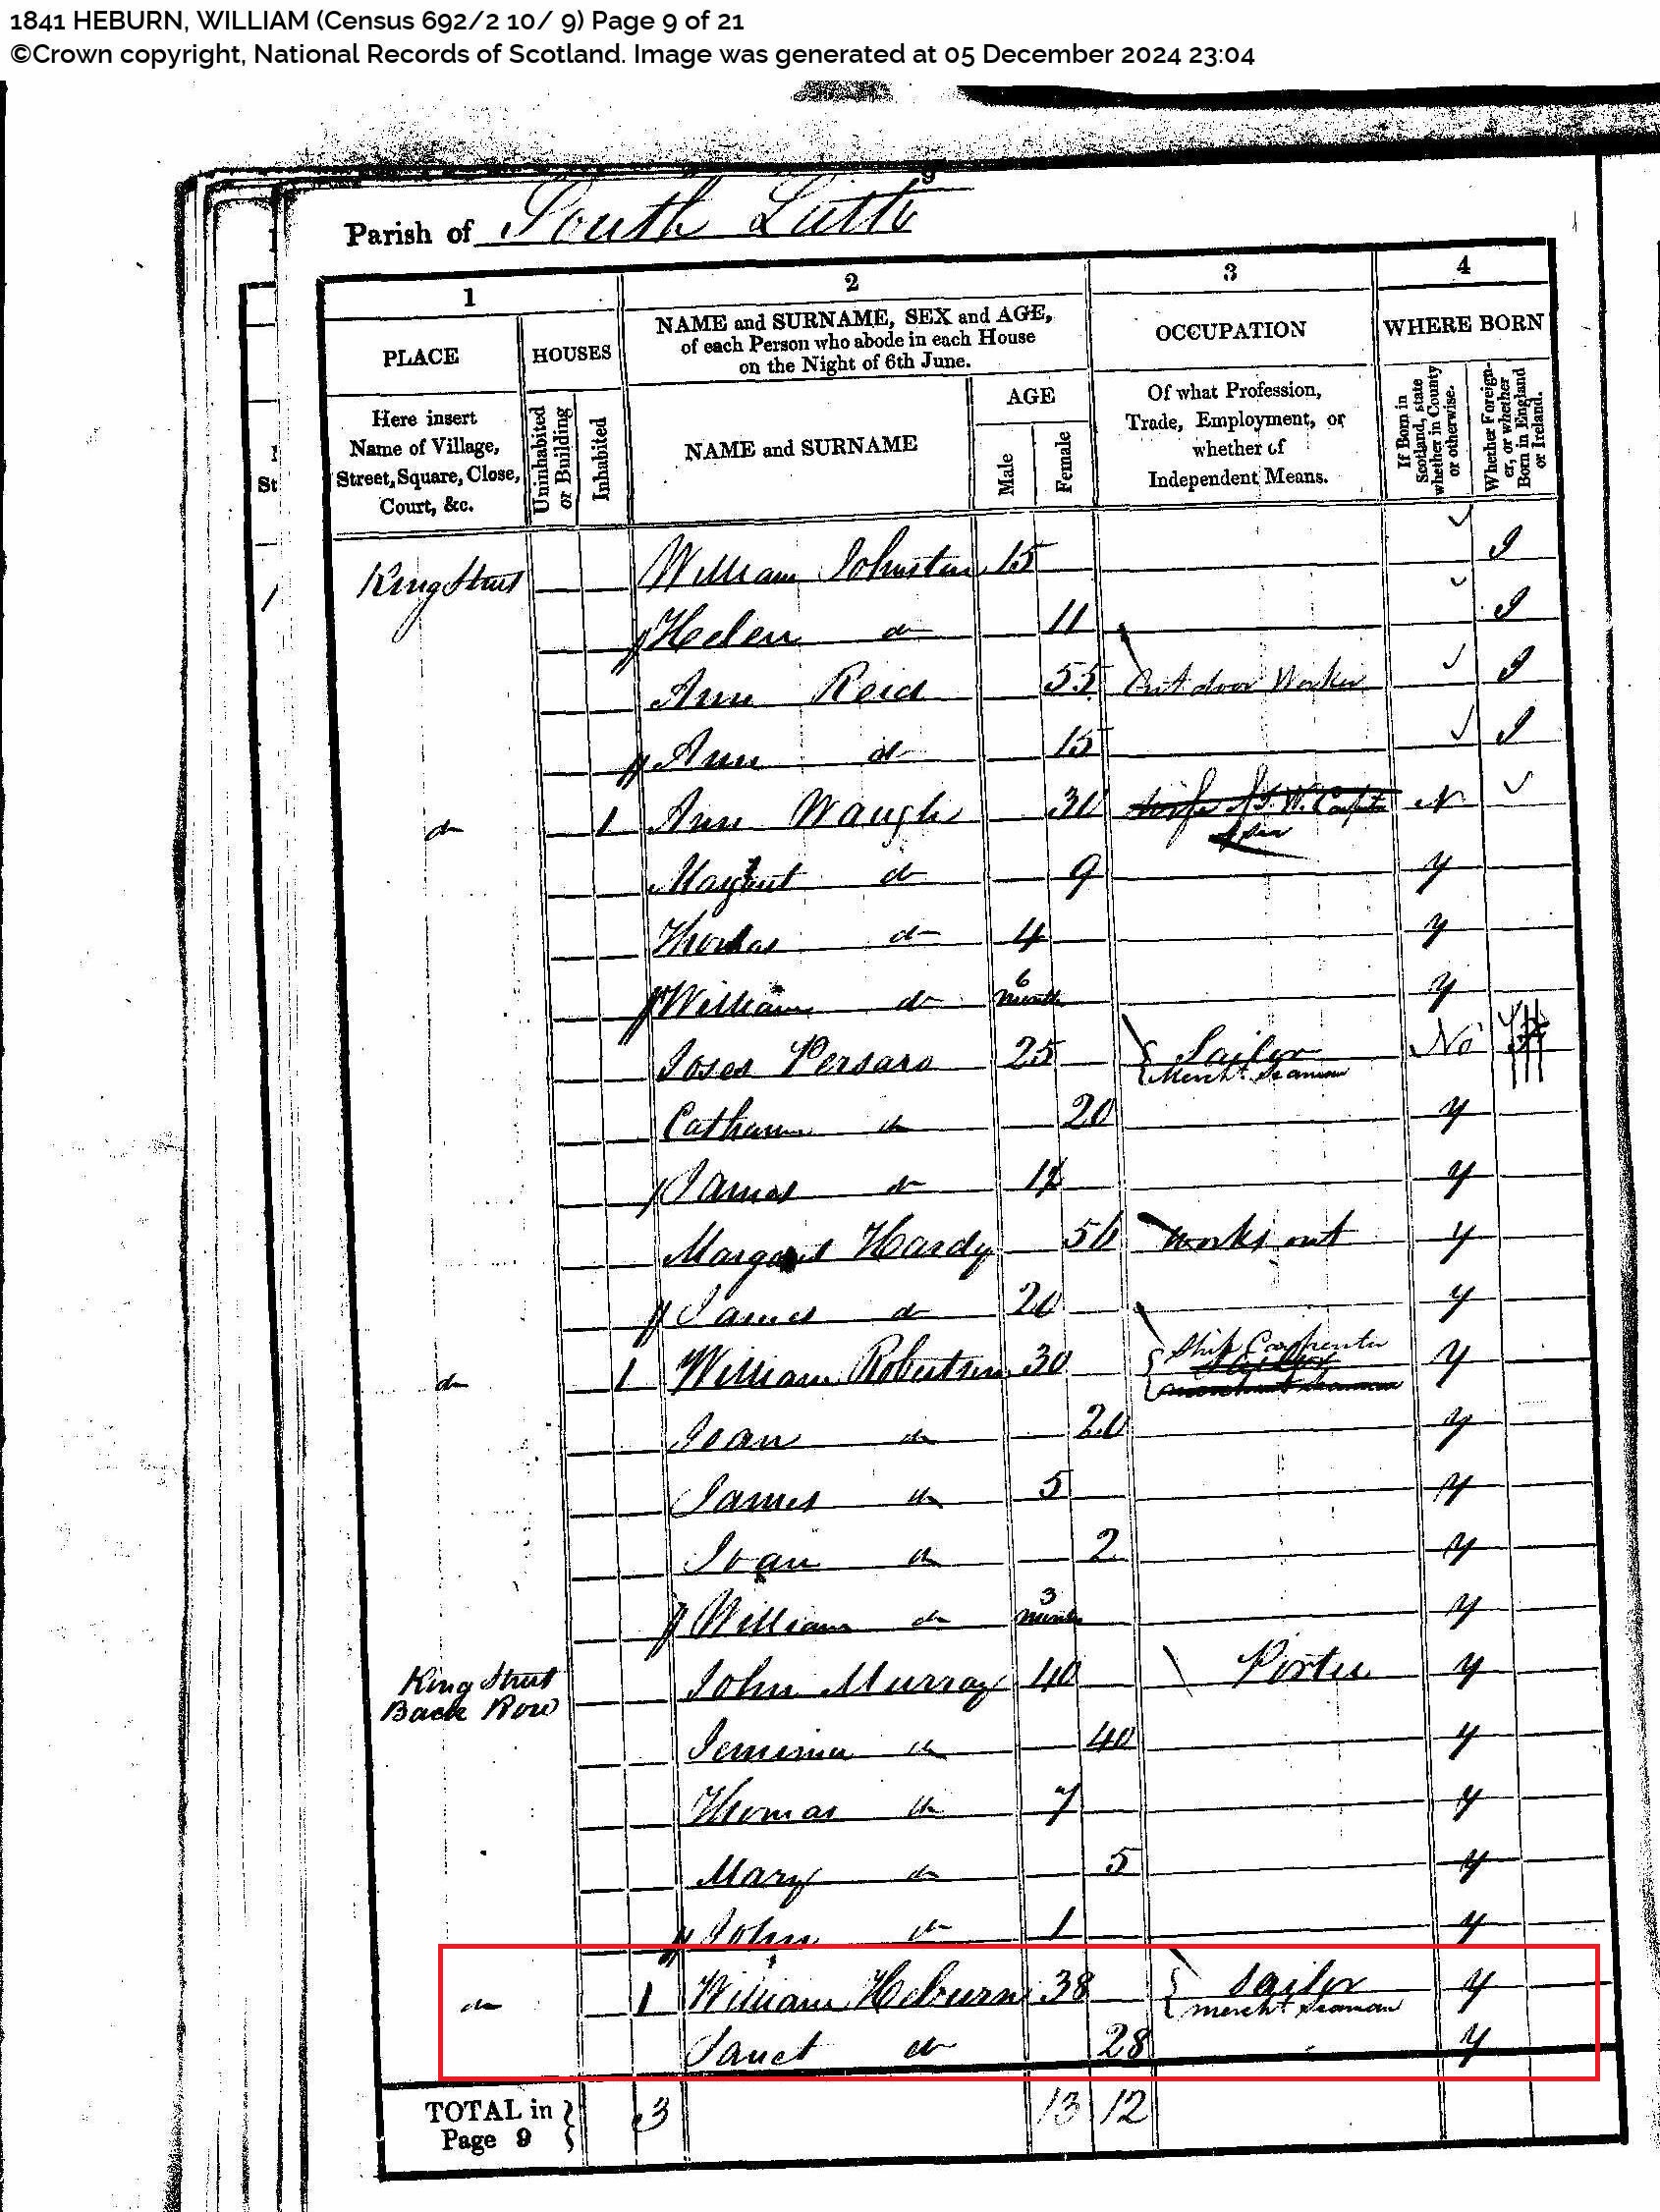 1841 HEBURN, WILLIAM (Census 692/2 10/ 9) Page 9 of 21
©Crown copyright, National Records of Scotland. Image was generated at 05 December 2024 23:04
9
Parish of South Leith
1 2 3 4
PLACE HOUSES NAME and SURNAME, SEX and AGE, of each Person who abode in each House on the Night of 6th June. OCCUPATION WHERE BORN
Here insert Name of Village, Street, Square, Close, Court, &c. Uninhabited or Building Inhabited NAME and SURNAME AGE Male Female Of what Profession, Trade, Employment, or whether of Independent Means. If Born in Scotland, state whether in County or otherwise. Whether Foreigner, or whether Born in England or Ireland.
King Street William Johnston 15 I
Helen do 11 I
Ann Reid 55 Out door Worker I
Ann do 15 I
do 1 Ann Waugh 30 N
Margaret do 9 y
Thomas do 4 y
William do 6 months y
Joses Persaro 25 Sailor Mercht. Seaman No
Catharine do 20 y
James do y
Margaret Hardy works out y
James do 20 y
do 1 William Robertson 30 Ship Carpenter y
Joan do 20 y
James do 5 y
Joan do 2 y
William do 3 months y
King Street Back Row John Murray 40 Porter y
Jemima do 40 y
Thomas do 7 y
Mary do 5 y
John do 1 y
do 1 William Heburn 38 Sailor mercht Seaman y
Janet do 28 y
TOTAL in Page 9 3 13 12